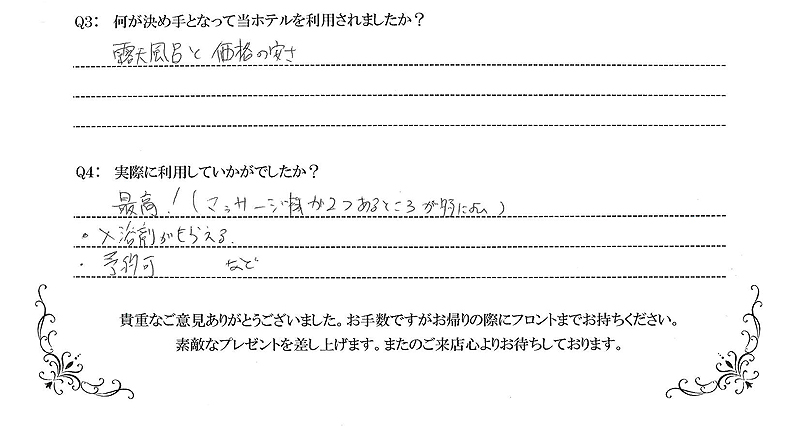 Q3： 何が決め手となって当ホテルを利用されましたか？
露天風呂と価格の安さ
Q4： 実際に利用していかがでしたか？
最高！（マッサージ機が2つあるところが特によい）
・入浴剤がもらえる。
・予約可 など
貴重なご意見ありがとうございました。お手数ですがお帰りの際にフロントまでお持ちください。
素敵なプレゼントを差し上げます。またのご来店心よりお待ちしております。